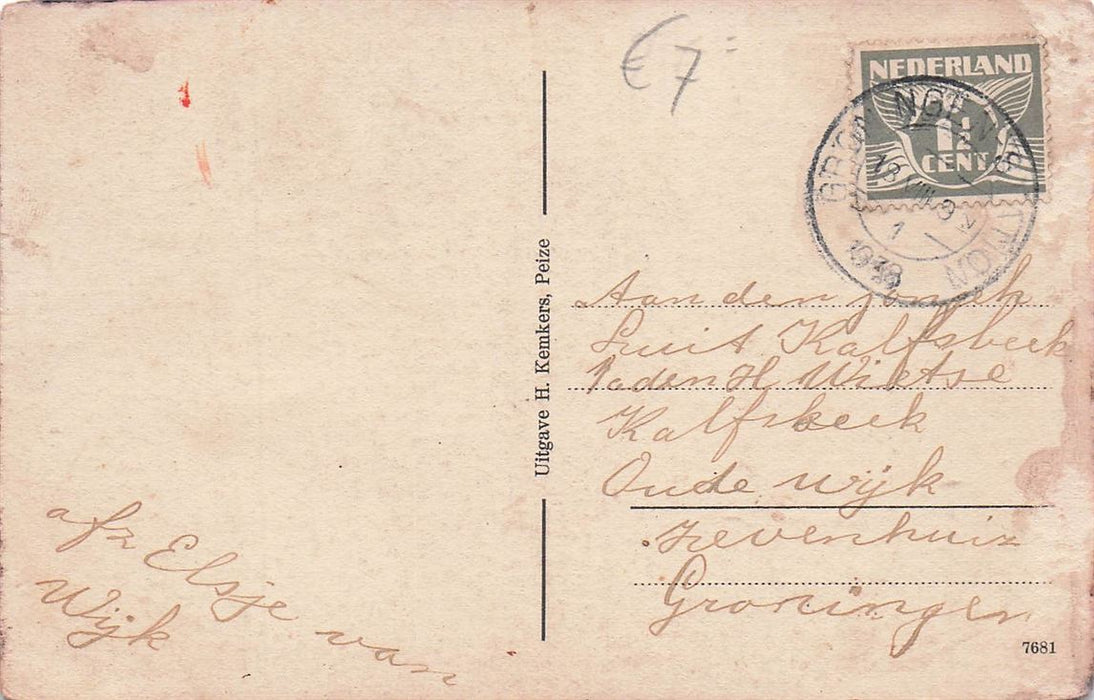 € 7=
NEDERLAND
1½
CENT
GRONINGEN STATION
1
1939
Uitgave H. Kemkers, Peize
Aan den jongeh
Luit Kalfsbeek
Wietse
Kalfsbeek
Oude wijk
Zevenhuiz
Groningen
afz Elsje van
Wijk
7681